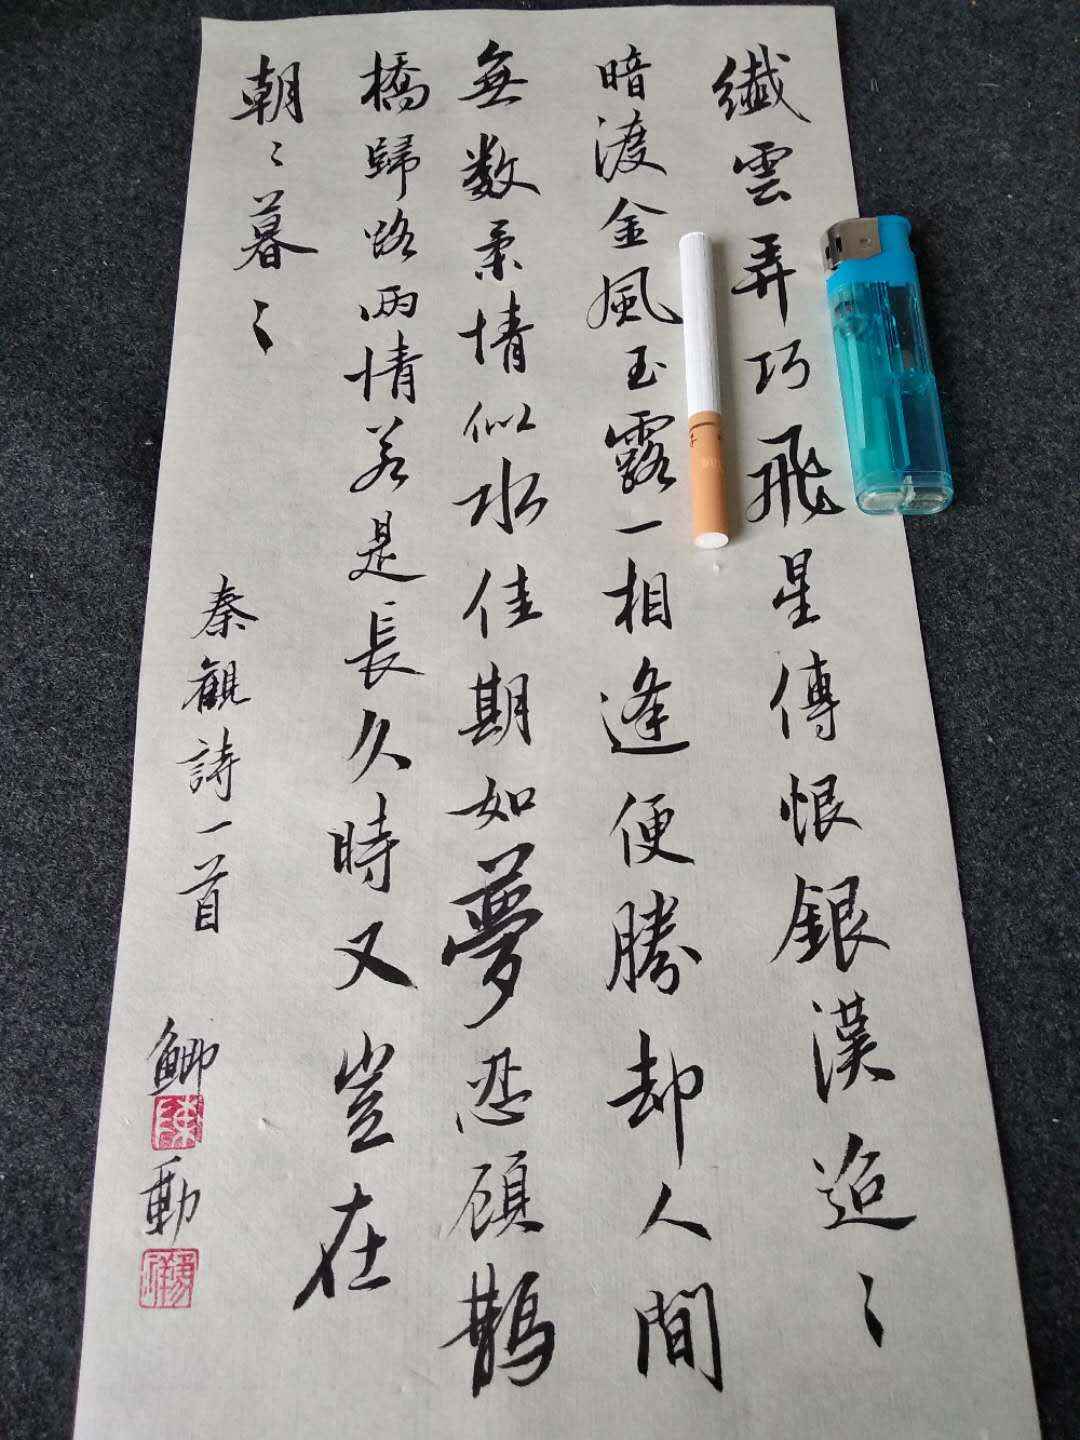 纖雲弄巧飛星傳恨銀漢迢〻
暗渡金風玉露一相逢便勝却人間
無数柔情似水佳期如夢忍顧鵲
橋歸路兩情若是長久時又豈在
朝〻暮〻
秦觀詩一首 動